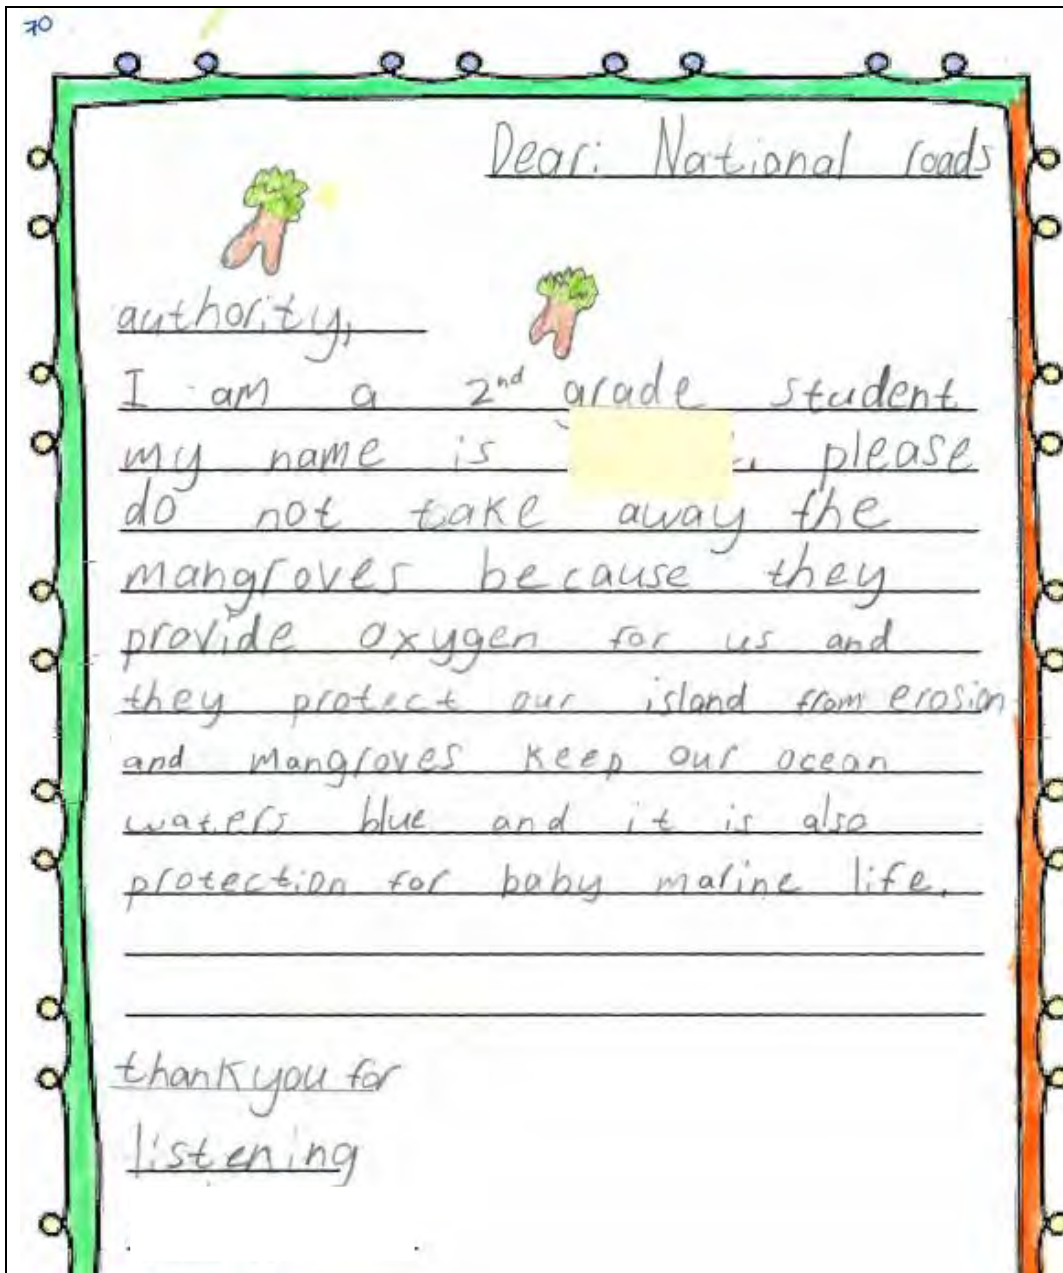 70
Dear: National roads
authority,
I am a 2nd grade student
my name is . please
do not take away the
mangroves because they
provide oxygen for us and
they protect our island from erosion
and mangroves keep our ocean
waters blue and it is also
protection for baby marine life.
thank you for
listening